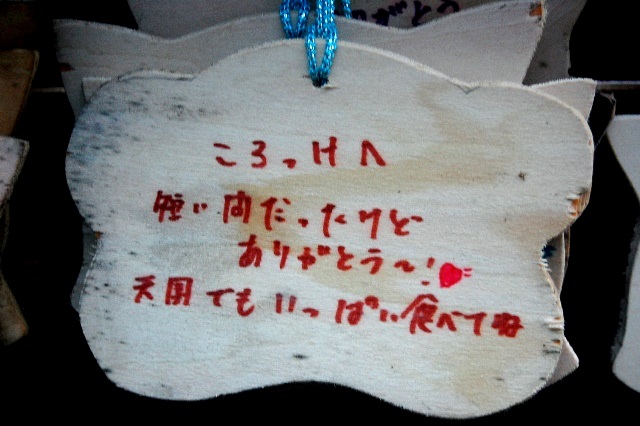 ころっけへ
短い間だったけど
ありがとう〜!
天国でもいっぱい食べてね